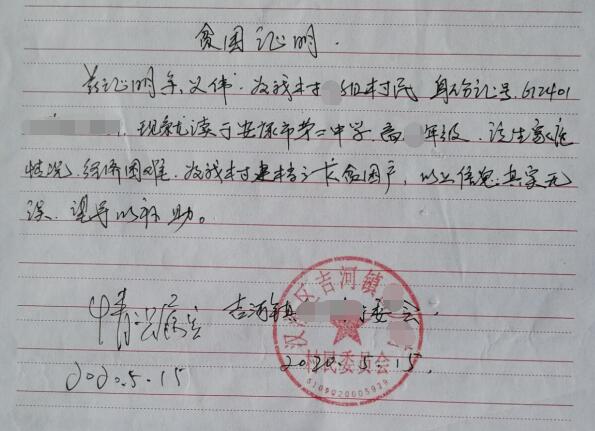 贫困证明.
兹证明余义伟.为我村 组村民 身份证号.612401
现就读于安康市第二中学.高 年级.该生家庭
情况.经济困难.为我村建档立卡贫困户,以上信息真实无
误.望予以补助。
情况属实
吉河镇 委会.
2020.5.15
2020.5.15.
汉 区吉河镇
村民委员会